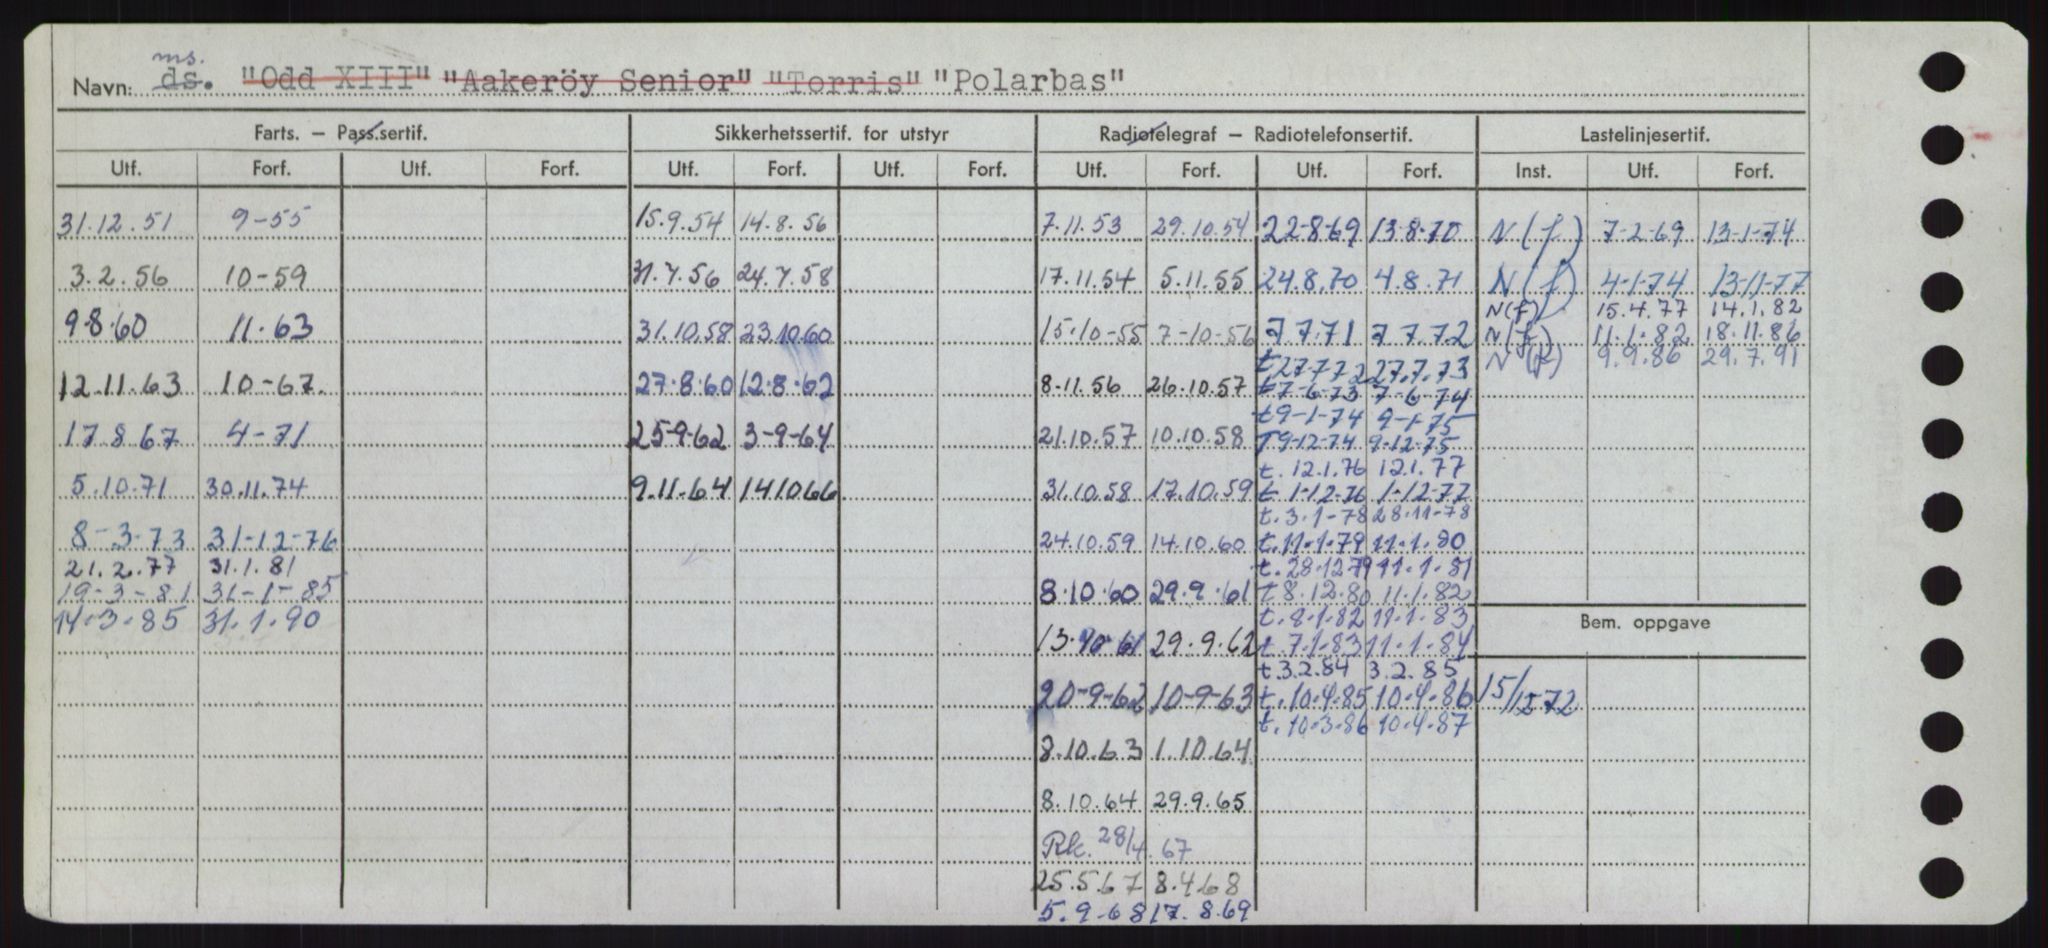 ms.
Navn: ds. "Odd XIII" "Aakeröy Senior" "Torris" "Polarbas"
Farts. – Pass.sertif. Sikkerhetssertif. for utstyr Radiotelegraf – Radiotelefonsertif. Lastelinjesertif.
Utf. Forf. Utf. Forf. Utf. Forf. Utf. Forf. Utf. Forf. Utf. Forf. Inst. Utf. Forf.
31.12.51 9-55 15.9.54 14.8.56 7.11.53 29.10.54 22-8-69 13.8.70 N(f) 7-2-69 13-1-74
3.2.56 10-59 31.7.56 24.7.58 17.11.54 5.11.55 24.8.70 4.8.71 N(f) 4-1-74 13-11-77
N(f) 15.4.77 14.1.82
9.8.60 11.63 31.10.58 23.10.60 15.10-55 7-10-56 7.7.71 7.7.72 N(f) 11.1.82 18.11.86
t 27.7.72 27.7.73 N(f) 9.9.86 29.7.91
12.11.63 10-67. 27.8.60 12.8.62 8-11.56 26.10.57 t 7-6-73 7-6-74
t 9-1-74 9-1-75
17.8.67 4-71 25-9-62 3-9-64 21.10.57 10.10.58 T 9-12-74 9-12-75
t. 12.1.76 12.1.77
5.10.71 30.11.74 9.11.64 14.10.66 31.10.58 17.10.59 t 1-12-76 1-12-77
t. 3.1-78 28.11-78
8-3-73 31-12-76 24.10.59 14.10.60 t. 11.1.79 11.1.80
21.2.77 31.1.81 t. 28.12.79 11.1.81
19-3-81 31-1-85 8.10.60 29.9.61 t 8.12.80 11.1.82
14.3.85 31.1.90 t. 8.1.82 11.1.83 Bem. oppgave
13.10.61 29.9.62 t. 7.1.83 11.1.84
t. 3.2.84 3.2.85
20-9-62 10-9-63 t. 10.4.85 10.4.86 15/1272
t. 10.3.86 10.4.87
8.10.63 1.10.64
8.10.64 29.9.65
Rk. 28/4.67
25.5.67 8.4.68
5.9-68 17.8.69